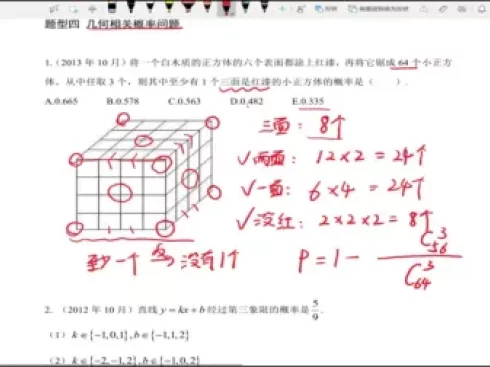 题型四 几何相关概率问题
1.（2013 年 10 月）将一个白木质的正方体的六个表面都涂上红漆，再将它锯成 64 个小正方
体。从中任取 3 个，则其中至少有 1 个三面是红漆的小正方体的概率是（ ）.
A.0.665 B.0.578 C.0.563 D.0.482 E.0.335
三面: 8个
✓两面: 12×2=24个
✓一面: 6×4=24个
✓没红: 2×2×2=8个
至少一个 没有1个
P=1-C³₅₆/C³₆₄
2.（2012 年 10 月）直线 y=kx+b 经过第三象限的概率是 5/9.
（1）k∈{-1,0,1},b∈{-1,1,2}
（2）k∈{-2,-1,2},b∈{-1,0,2}